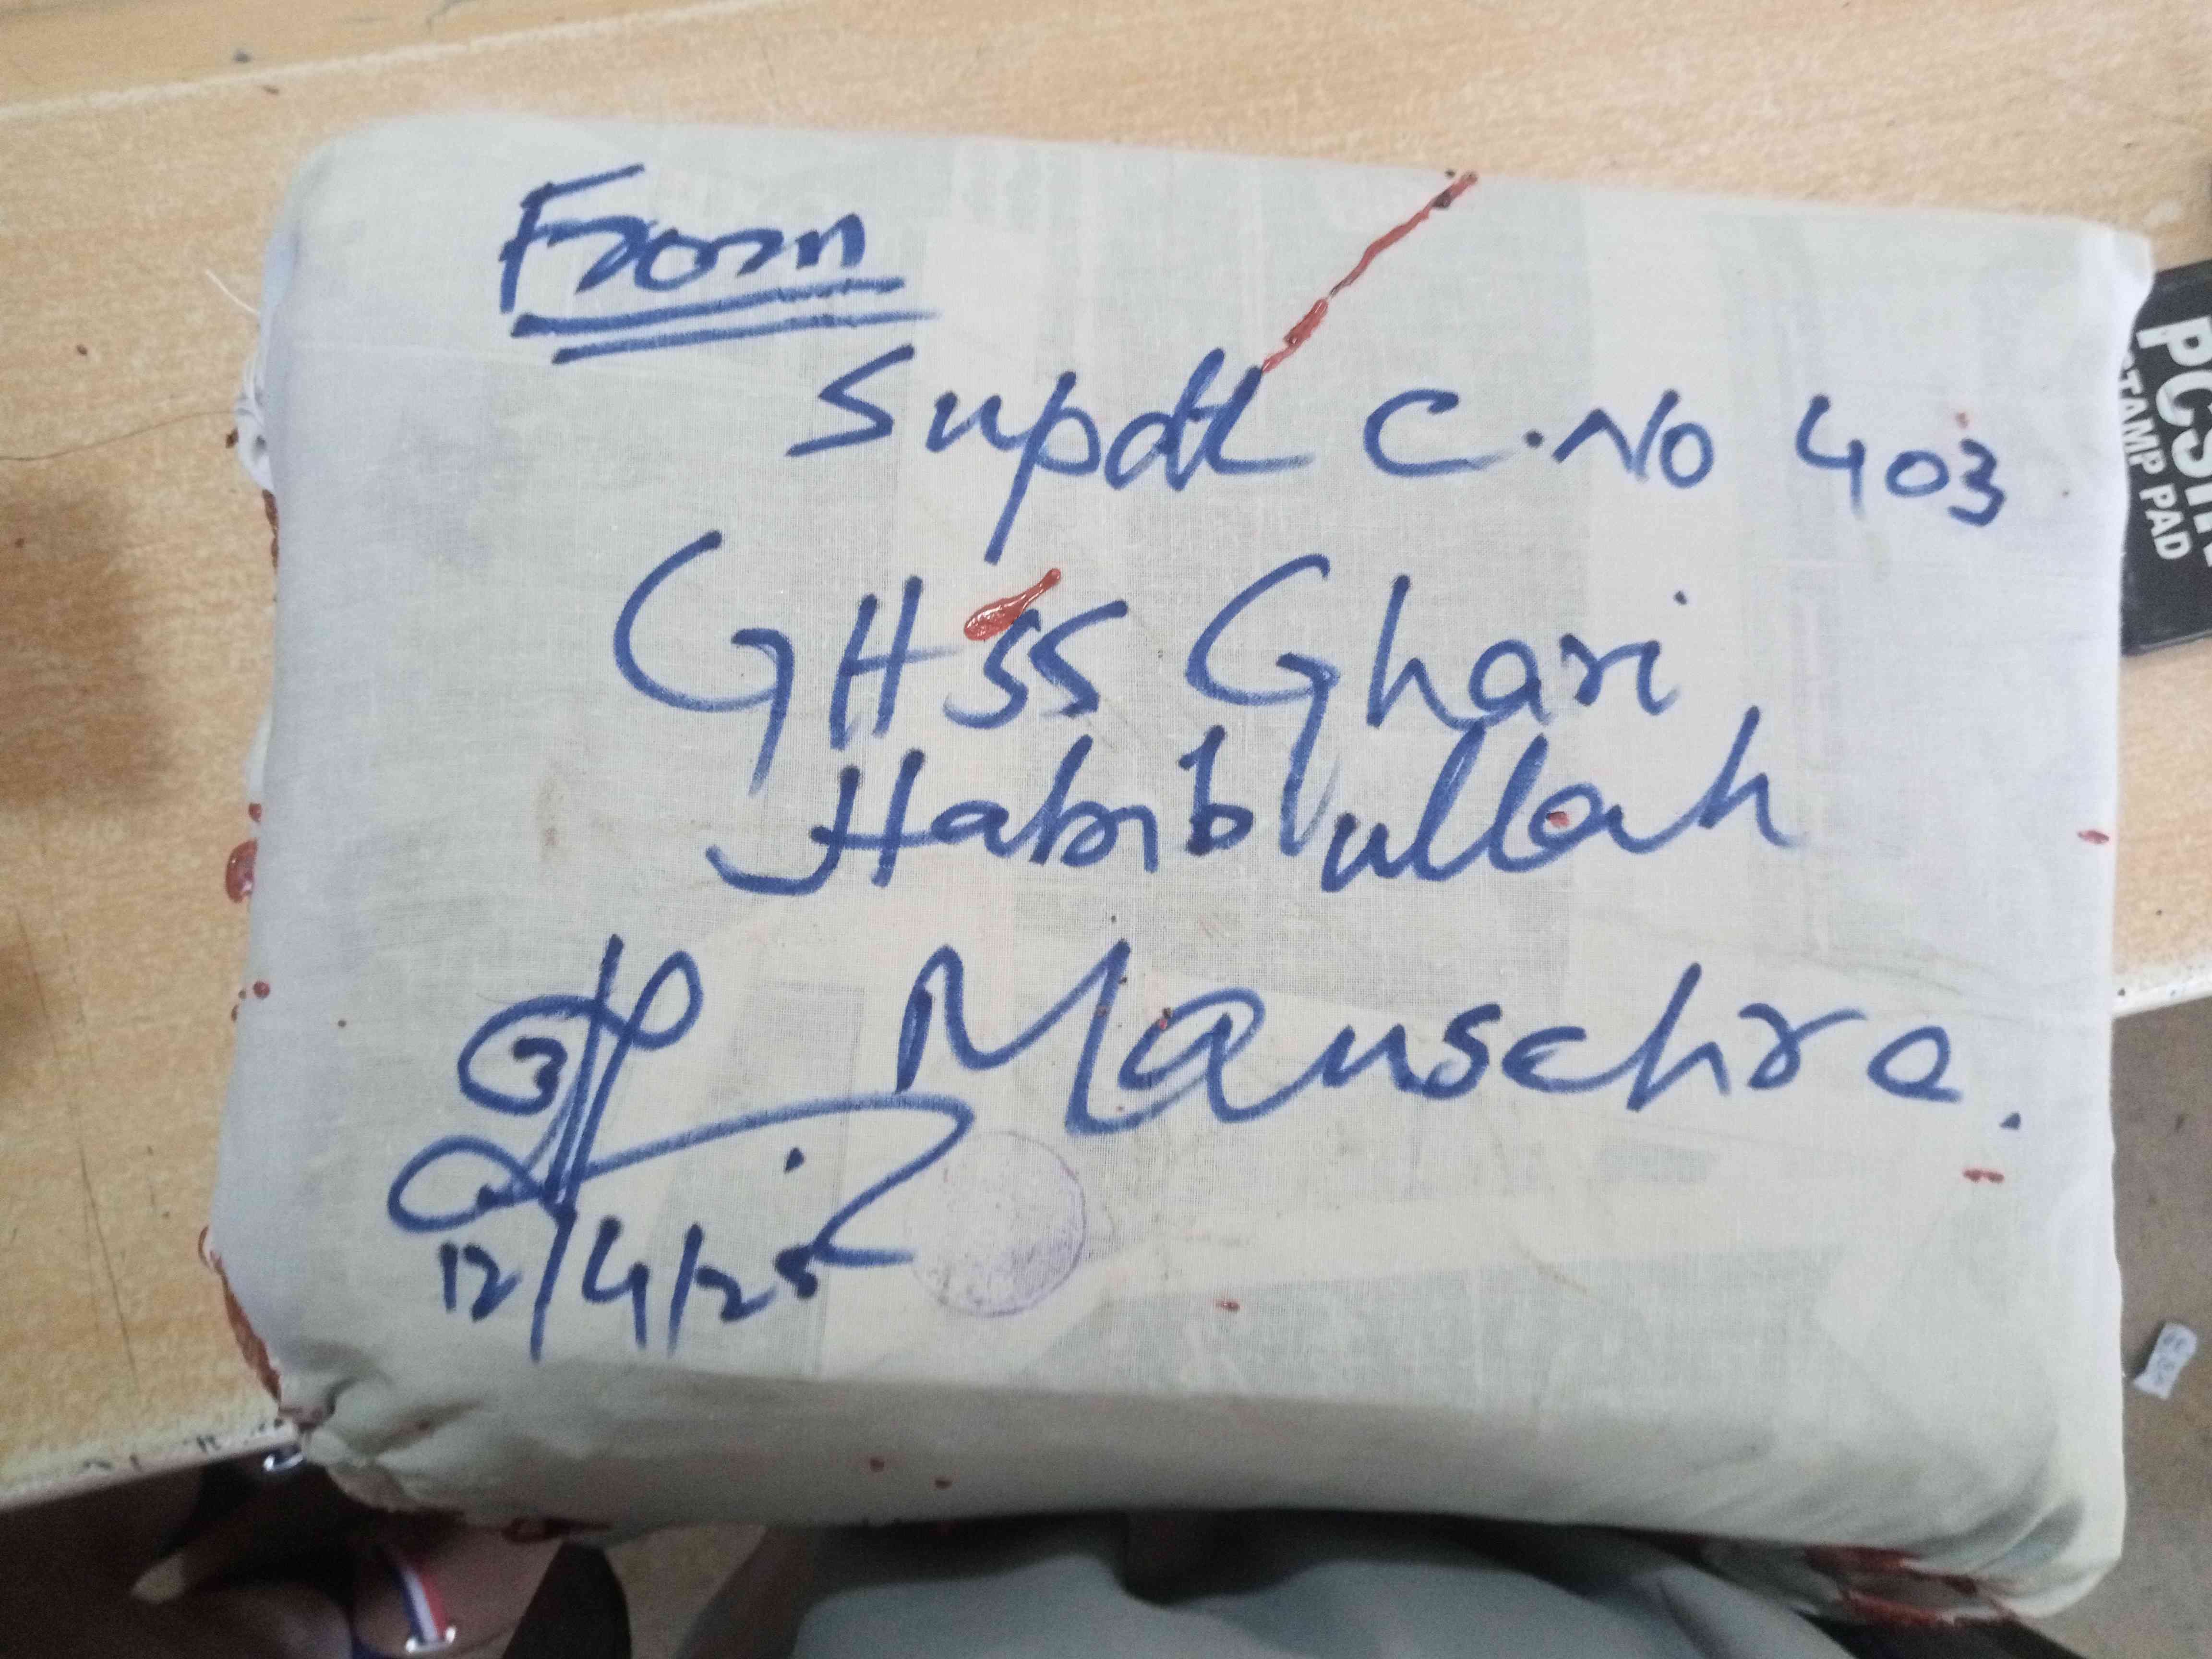 From
Supdt C.No 403
GHSS Ghari
Habibullah
Mansehra.
12/4/25
PCSI
STAMP PAD